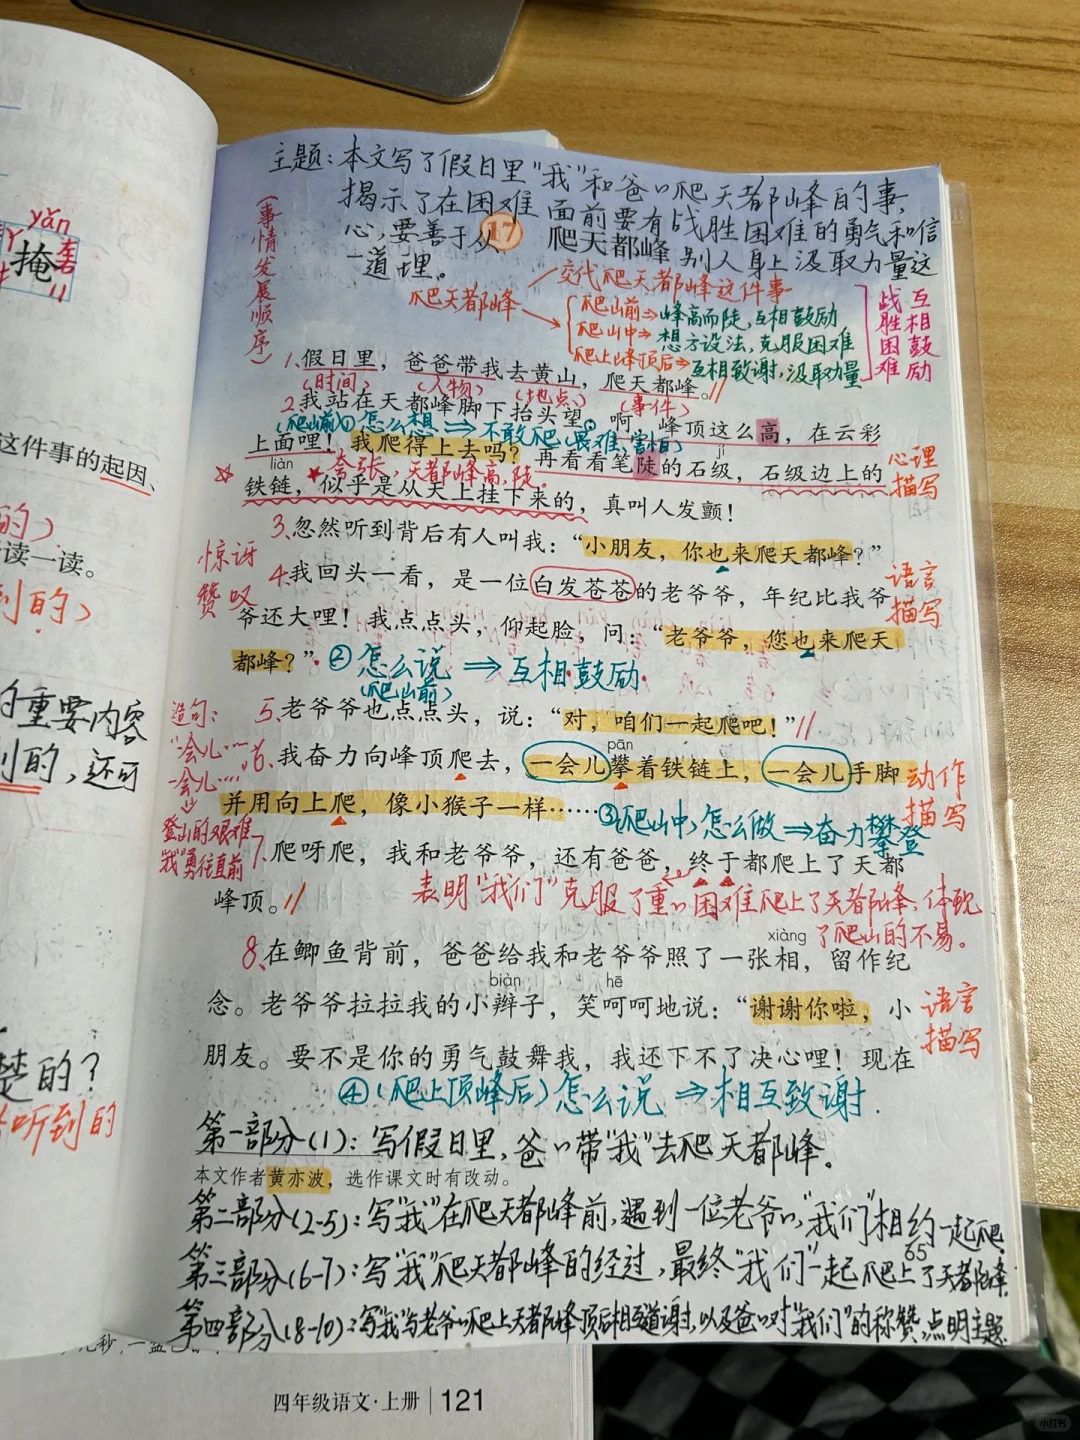 yǎn
掩
这件事的起因、
的)
读一读。
到的)
的重要内容
到的,还可
楚的?
听到的
主题:本文写了假日里"我"和爸爸爬天都峰的事,
揭示了在困难面前要有战胜困难的勇气和信
心,要善于从别人身上汲取力量这
一道理。
17 爬天都峰
(事情发展顺序)
爬天都峰
交代爬天都峰这件事
爬山前⇒峰高而陡,互相鼓励
爬山中⇒想方设法,克服困难
爬上峰顶后⇒互相致谢,汲取力量
战胜困难
互相鼓励
1、假日里,爸爸带我去黄山,爬天都峰。
(时间) (人物) (地点) (事件)
2、我站在天都峰脚下抬头望:啊,峰顶这么高,在云彩
(爬山前)①怎么想⇒不敢爬(艰难,害怕)
上面哩!我爬得上去吗?再看看笔陡的石级,石级边上的
liàn jí
夸张,天都峰高,陡。
心理描写
铁链,似乎是从天上挂下来的,真叫人发颤!
3、忽然听到背后有人叫我:“小朋友,你也来爬天都峰?”
惊讶
赞叹
4、我回头一看,是一位白发苍苍的老爷爷,年纪比我爷
语言描写
爷还大哩!我点点头,仰起脸,问:“老爷爷,您也来爬天
都峰?”
②怎么说⇒互相鼓励
(爬山前)
5、老爷爷也点点头,说:“对,咱们一起爬吧!”
造句:
一会儿……
一会儿……
登山的艰难
"我"勇往直前
pān
6、我奋力向峰顶爬去,一会儿攀着铁链上,一会儿手脚
动作描写
并用向上爬,像小猴子一样……
③爬山中,怎么做⇒奋力攀登
7、爬呀爬,我和老爷爷,还有爸爸,终于都爬上了天都
峰顶。
表明"我们"克服了重重困难爬上了天都峰,体现
了爬山的不易。
xiàng
8、在鲫鱼背前,爸爸给我和老爷爷照了一张相,留作纪
biàn hē
念。老爷爷拉拉我的小辫子,笑呵呵地说:“谢谢你啦,小
语言描写
朋友。要不是你的勇气鼓舞我,我还下不了决心哩!现在
④(爬上顶峰后)怎么说⇒相互致谢.
第一部分(1):写假日里,爸爸带"我"去爬天都峰。
本文作者黄亦波,选作课文时有改动。
第二部分(2-5):写"我"在爬天都峰前,遇到一位老爷爷,"我们"相约一起爬.
65
第三部分(6-7):写"我"爬天都峰的经过,最终"我们"一起爬上了天都峰.
第四部分(8-10):写"我"与老爷爷爬上天都峰顶后相互道谢,以及爸爸对"我们"的称赞,点明主题.
四年级语文·上册 121
小红书